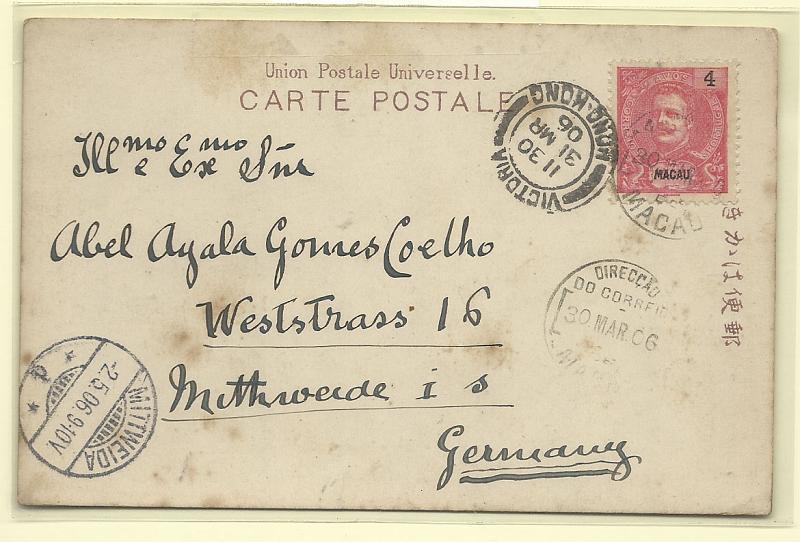 Union Postale Universelle.
CARTE POSTALE
Ill.mo e Exmo Snr
Abel Ayala Gomes Coelho
Weststrass 16
Mittweide i s
Germany
4
MACAU
VICTORIA
11 30
31 MR
06
HONG-KONG
30
MACAU
DIRECÇÃO
DO CORREIO
30.MAR.06
MITTWEIDA
-2.5.06.9-10V.
* p *
きかは便郵